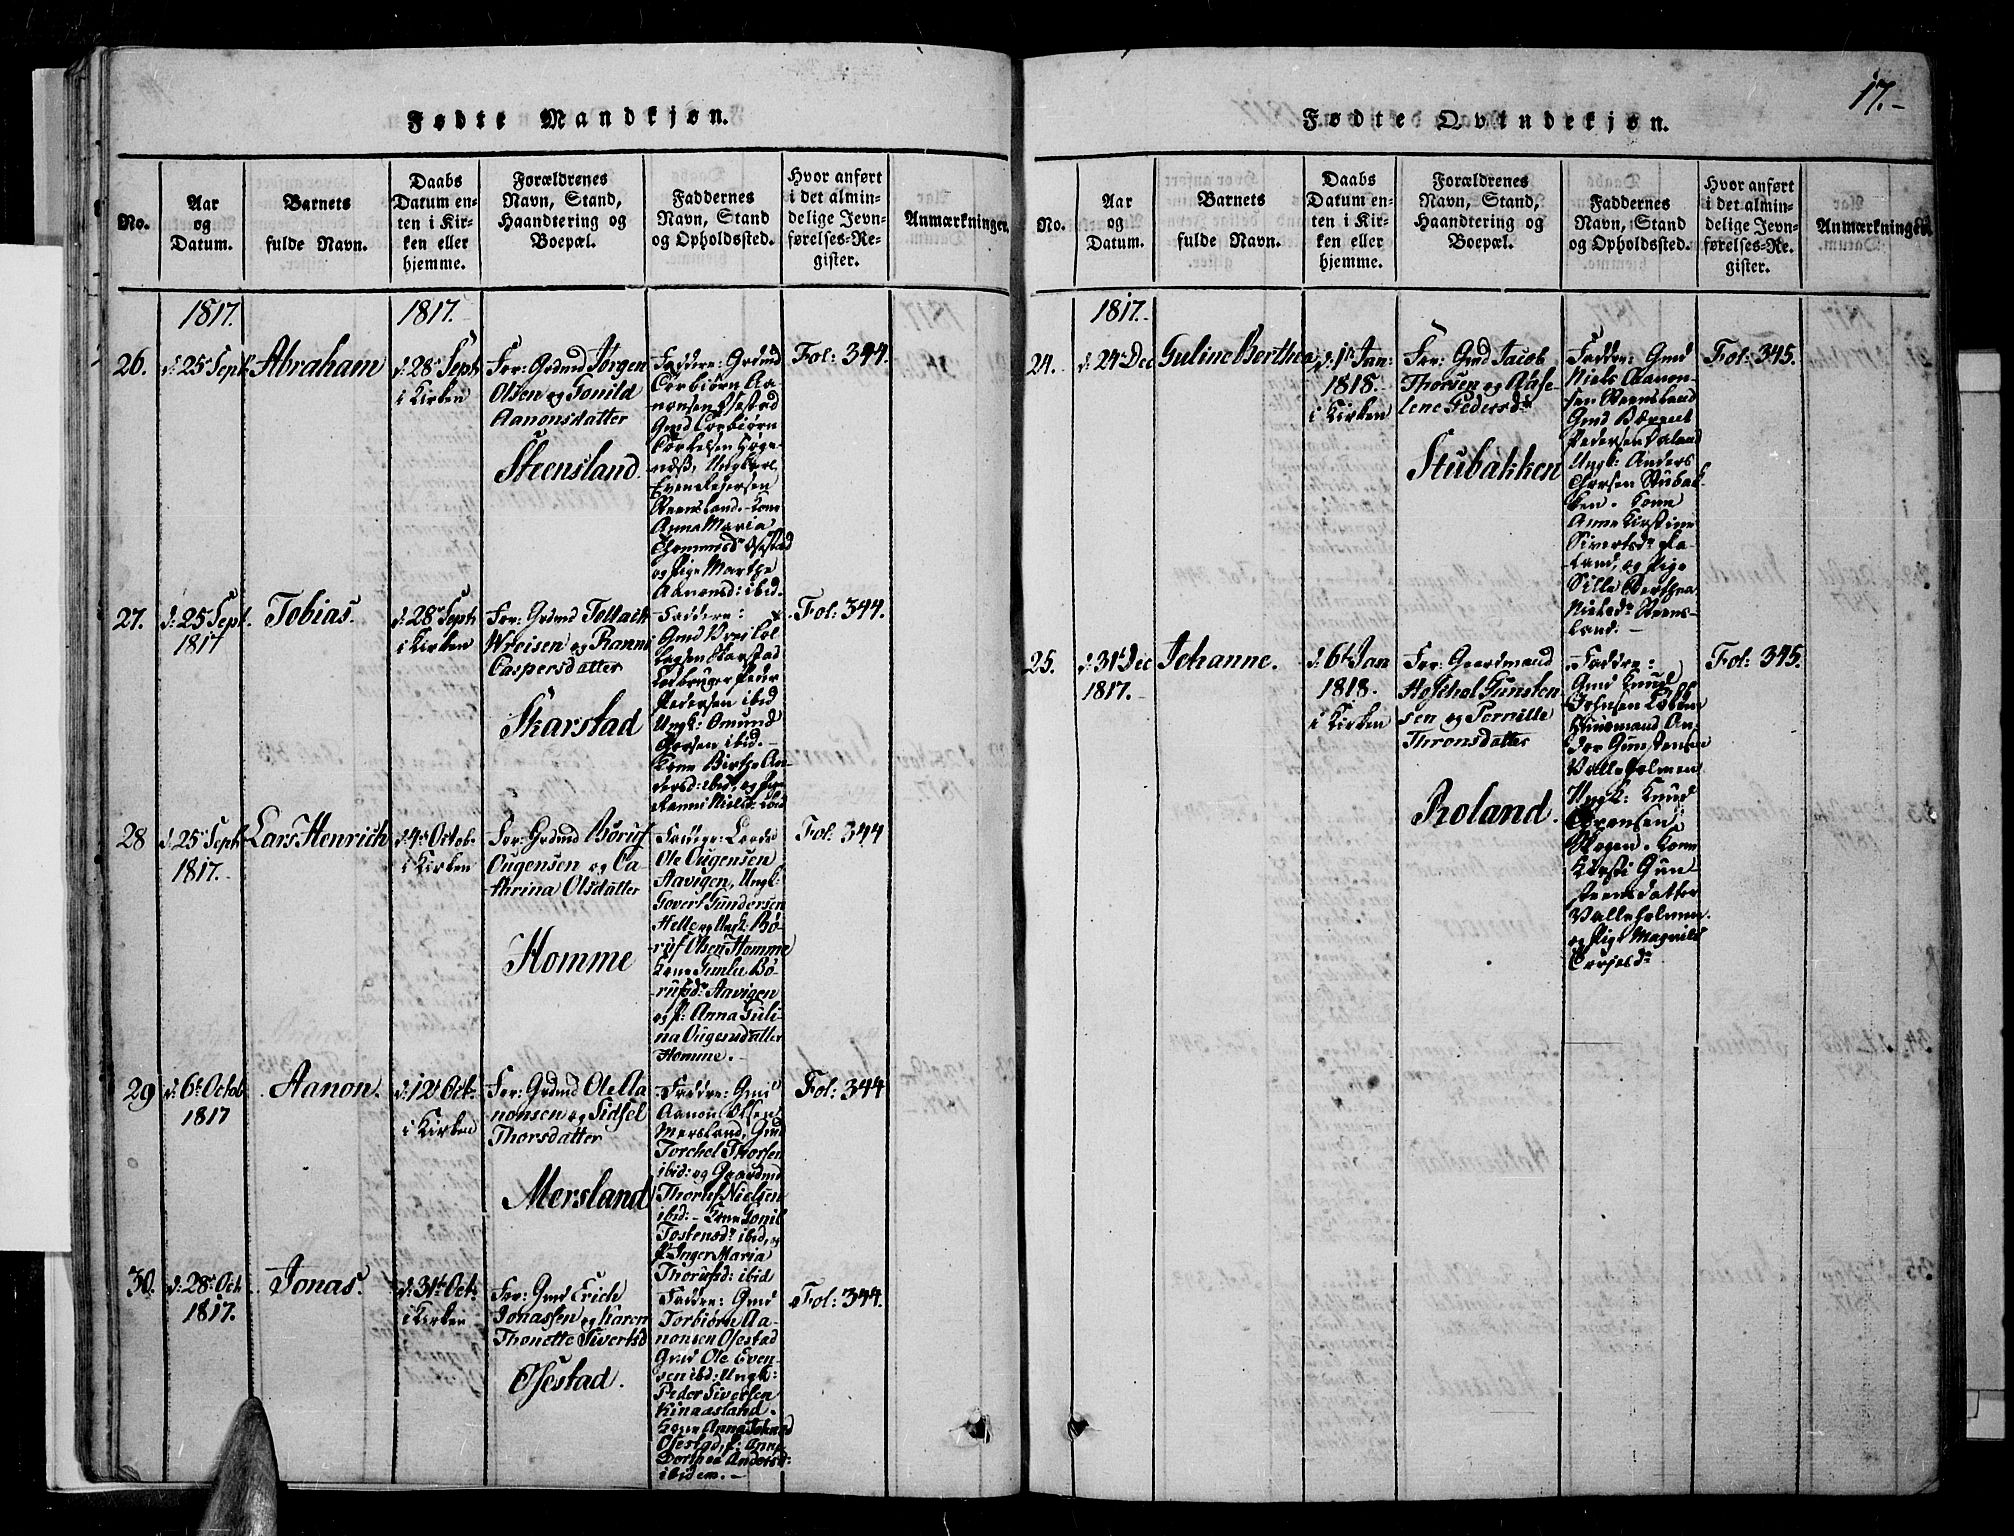 17.-
Fødte Mandkjøn.
No.
Aar
og
Datum.
Barnets
fulde Navn.
Daabs
Datum en-
ten i Kir-
ken eller
hjemme.
Forældrenes
Navn, Stand,
Haandtering og
Boepæl.
Faddernes
Navn, Stand
og Opholdssted.
Hvor anført
i det almin-
delige Jevn-
førelses-Re-
gister.
Anmærkninger.
1817.
1817.
26.
d: 25 Sept
Abraham
d: 28 Sept
i Kirken
For: Grdmd Jørgen
Olsen og Gonild
Aanonsdatter
Steensland.
Faddre: Grdmd
Torbiørn Aa-
nonsen Osestad
Gmd Torbiørn
Even Pedersen
Steensland. Kone
Anna Maria
og Pige Marthe
Aanonsd: ibid.
Fol: 344.
27.
d: 25 Sept.
1817
Tobias.
d: 28 Sept
i Kirken
For: Grdmd Tollach
Wreisen og Ranni
Caspersdatter
Skarstad
Faddre:
Pedersen ibid
Ungk: Omund
ibid.
Kone Birthe An-
dersd: ibid, og Pige
Ranni Nielsd: ibid
Fol: 344.
28
d: 25 Sept
1817.
Lars Henrich
d: 4 Octob.
i Kirken
For: Grdmd Børuf
Ougensen og Ca
thrina Olsdatter
Homme
Ole Ougensen
Aavigen, Ungk:
Govert Gundersen
Helle og Ungk: Bø-
ruf Olsen Homme
Kone Gunlu Bø-
rufsd: Aavigen
og P: Anna Guli
na Ougensdatter
Homme.
Fol: 344
29
d: 6t Octob
1817
Aanon.
d: 12t Oct.
i Kirken
For: Grdmd Ole Aa
nonsen og Sidsel
Thorsdatter
Mersland
Faddre: Gmd
Aanon Olsen
Mersland, Gmd
Torchel Thorsen
ibid: og Gaardmd
Thoruf Nielsen
ibid: Kone Gonil
Tostensd: ibid, og
P: Inger Maria
Thorufsd: ibid
Fol: 344
30.
d: 28 Oct
1817.
Jonas.
d: 31t Oct.
i Kirken
For: Gmd Erich
Jonassen og Karen
Thonette Sivertsd
Osestad.
Faddre: Gmd
Torbiørn Aa-
nonsen Osestad
Grmd Ole Even-
sen ibd: Ungk:
Peder Siversen
Kinaasland.
Kone Anna
Osestad, P: Anne
Dorthea Andersd:
ibidem.
Fol: 344.
Fødte Qvindekjøn.
No.
Aar
og
Datum.
Barnets
fulde Navn.
Daabs
Datum en-
ten i Kir-
ken eller
hjemme.
Forældrenes
Navn, Stand,
Haandtering og
Boepæl.
Faddernes
Navn, Stand
og Opholdssted.
Hvor anført
i det almin-
delige Jevn-
førelses-Re-
gister.
Anmærkninger.
1817.
24.
d: 24 Dec
Guline Berthea
d: 1t Jan:
1818.
i Kirken
For: Gmd Jacob
Thorsen og Aase
lene Pedersd:
Stubakken
Faddre: Gmd
Niels Aanon-
sen Steensland
Gmd Bærent
Pedersen
Ungk: Anders
Thorsen Stubak-
ken. Kone
Anne Kirstine
Sivertsd:
land, og Pige
Sille Berthea
Nielsd: Steens-
land.
Fol: 345.
25.
d: 31t Dec
1817.
Johanne.
d: 6t Jan
1818.
i Kirken
For: Gaardmand
Gunsten
sen og Pernille
Thronsdatter
Roland.
Faddre:
Gmd Knud
Johnsen
Gunstensen
Valleholmen
Ungk: Knud
Skogen. Kone
Kirsti Gun-
stensdatter
Valleholmen.
og Pige Magnild
Fol: 345.